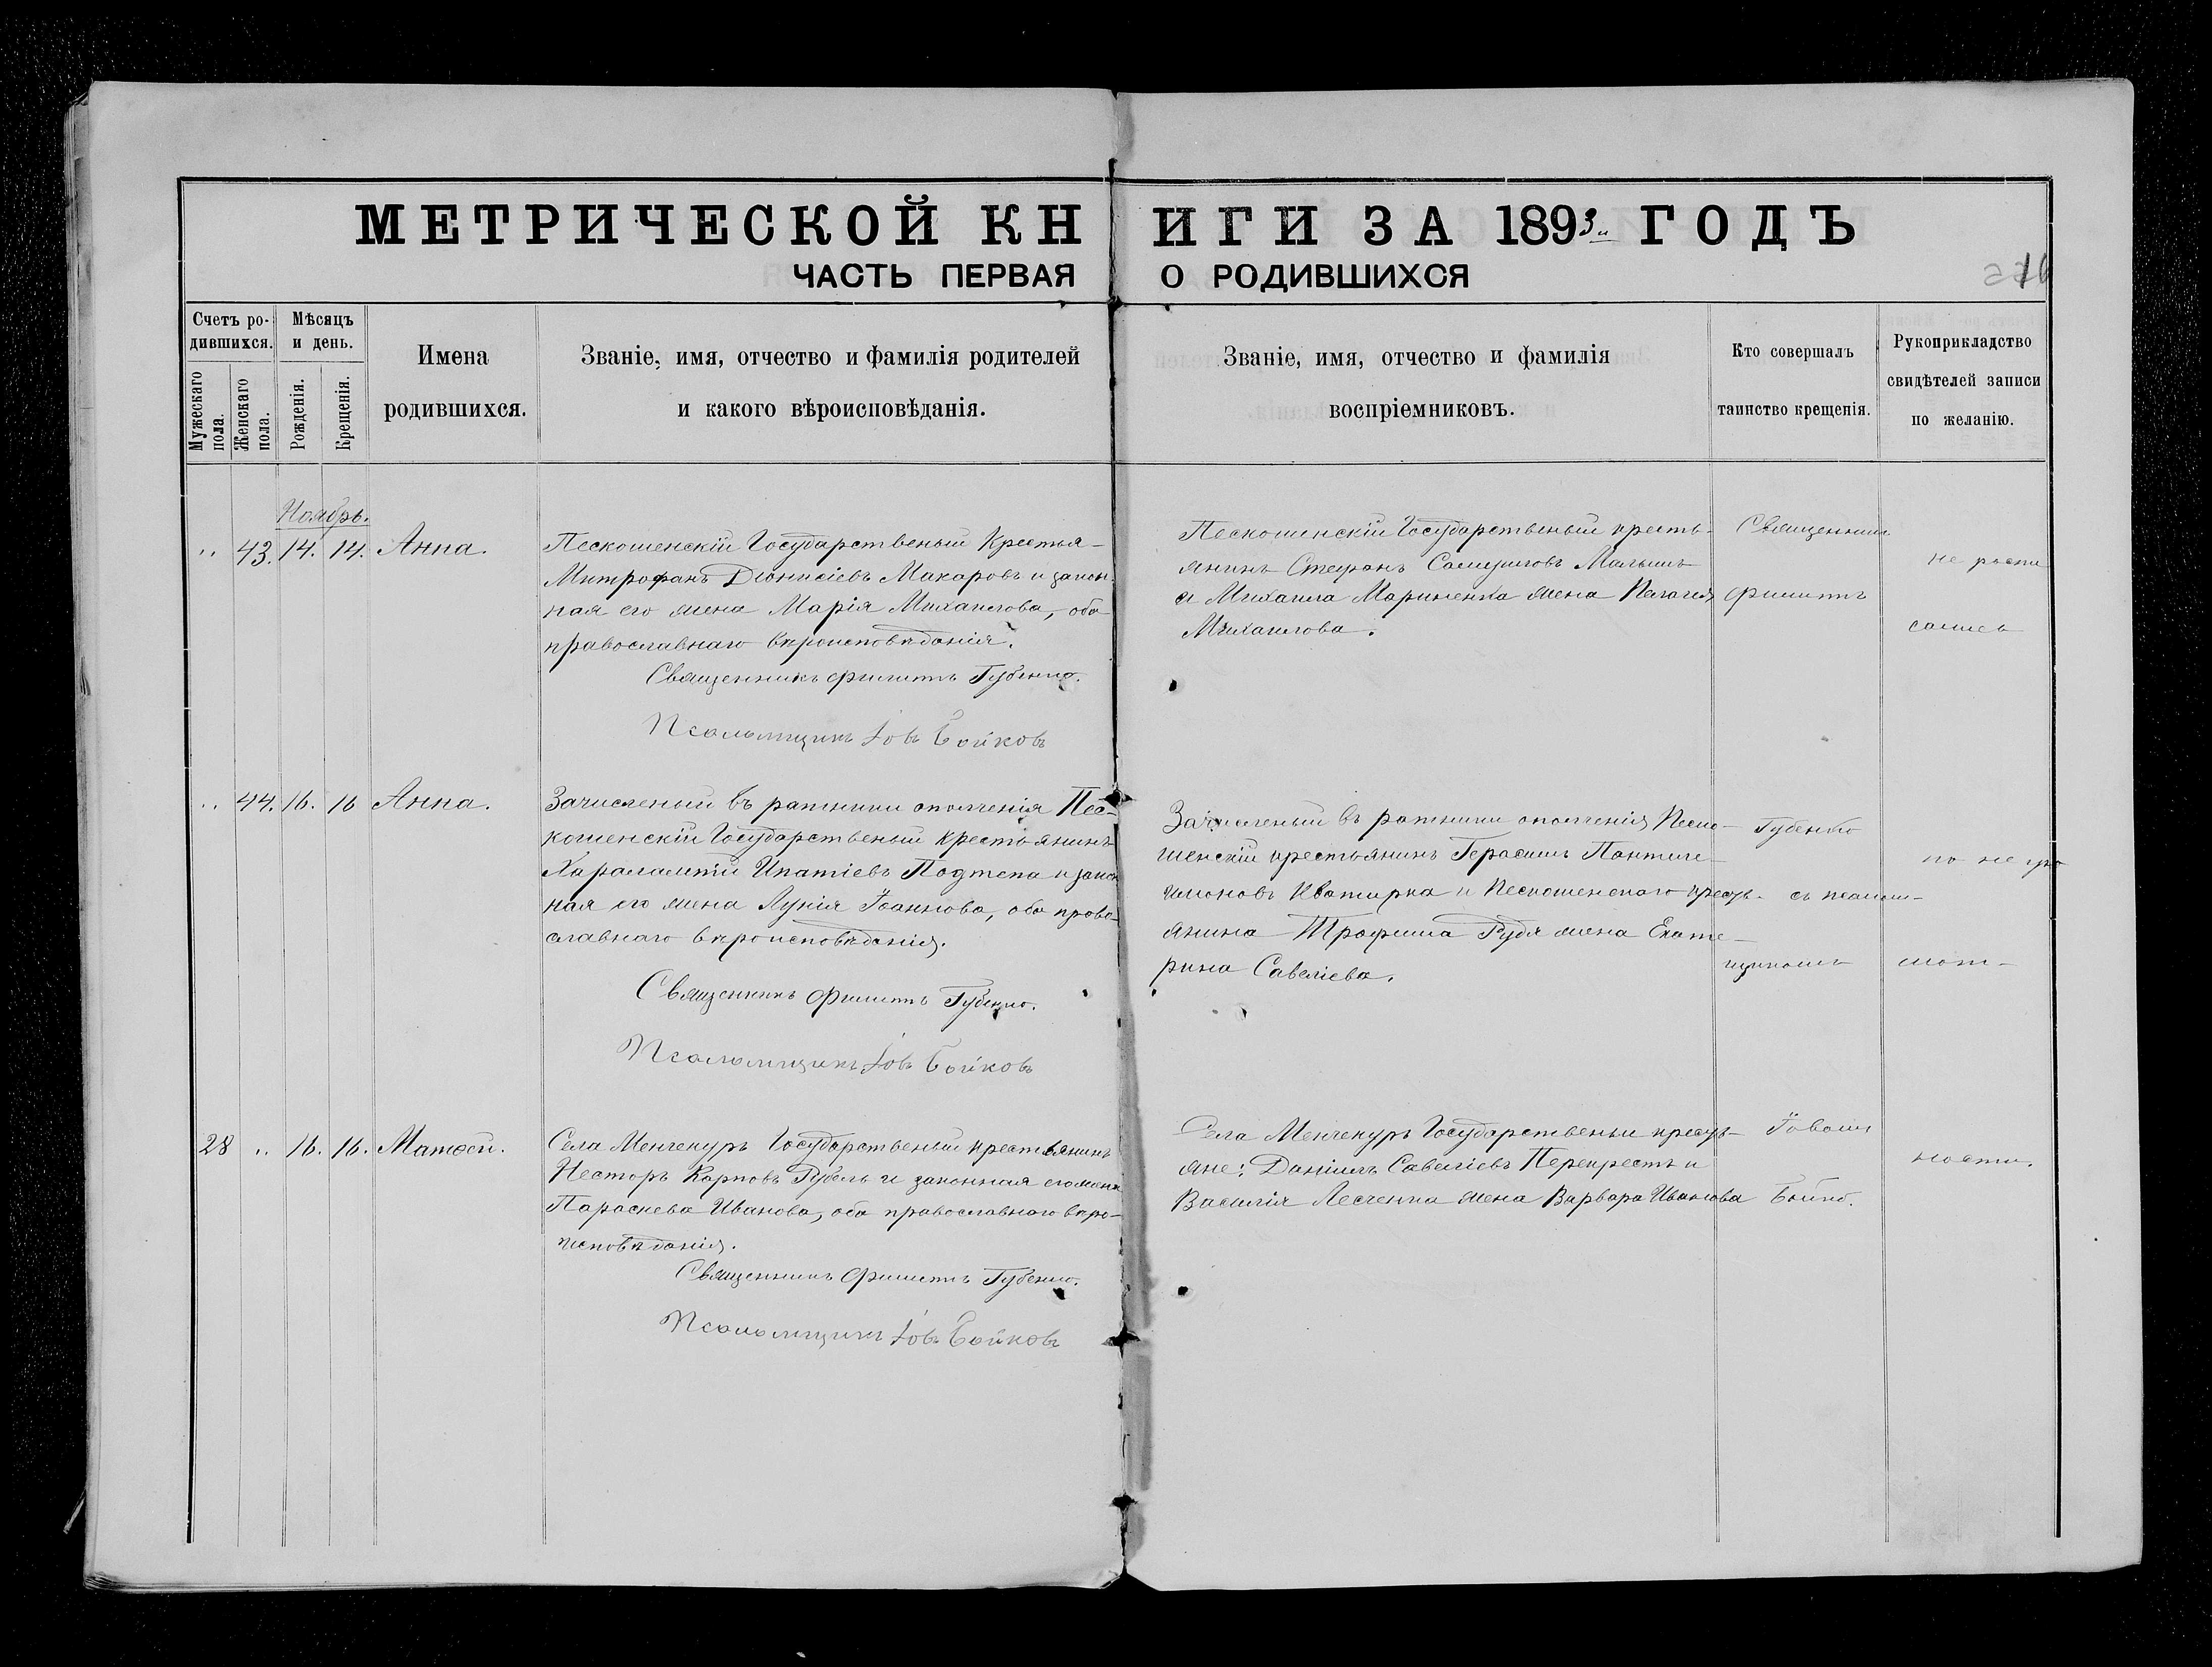 МЕТРИЧЕСКОЙ КНИГИ ЗА 1893й ГОДЪ
ЧАСТЬ ПЕРВАЯ О РОДИВШИХСЯ
Счетъ ро-
дившихся.
Мужескаго
пола.
Женскаго
пола.
Мѣсяцъ
и день.
Рожденія.
Крещенія.
Имена
родившихся.
Званіе, имя, отчество и фамилія родителей
и какого вѣроисповѣданія.
Званіе, имя, отчество и фамилія
воспріемниковъ.
Кто совершалъ
таинство крещенія.
Рукоприкладство
свидѣтелей записи
по желанію.
Ноябрь.
" 43. 14. 14. Анна.
Пескошенскій Государственый Крестья-
Митрофанъ Діонисіевъ Макаровъ и закон-
ная его жена Марія Михаилова, оба
православнаго вѣроисповѣданія.
Священникъ Филиппъ Губенко.
Псаломщикъ Іовъ Бойковъ
Пескошенскій Государственый кресть-
янинъ Стефанъ Малышъ
и Михаила Мариненка жена Пелагея
Михаилова.
Священникъ
Филиппъ
не роспи
сались
" 44. 16. 16 Анна.
Зачисленый въ ратники ополченія Пес-
кошенскій Государственый крестьянинъ
Харалампій Ипатіевъ Подтепа и закон
ная его жена Лукія Іоаннова, оба право-
славнаго вѣроисповѣданія.
Священникъ Филиппъ Губенко.
Псаломщикъ Іовъ Бойковъ
Зачисленый въ ратники ополченія Песко-
шенскій крестьянинъ Герасимъ Пантеле-
имоновъ Кватирка и Пескошенскаго крест-
янина Трофима Рудя жена Екате-
рина Савеліева.
Губенко
съ псалом-
щикомъ
по не гра
мот-
28 " 16. 16. Матѳей.
Села Менчекуръ Государственый крестьянинъ
Несторъ Карповъ Губель и законная его жена
Параскева Иванова, оба православнаго вѣро-
исповѣданія.
Священникъ Филиппъ Губенко.
Псаломщикъ Іовъ Бойковъ
Села Менчекуръ Государственые крест-
яне: Даніилъ Савеліевъ Перекрестъ и
Василія Лесченка жена Варвара Иванова
Іовомъ
Бойко.
ности.